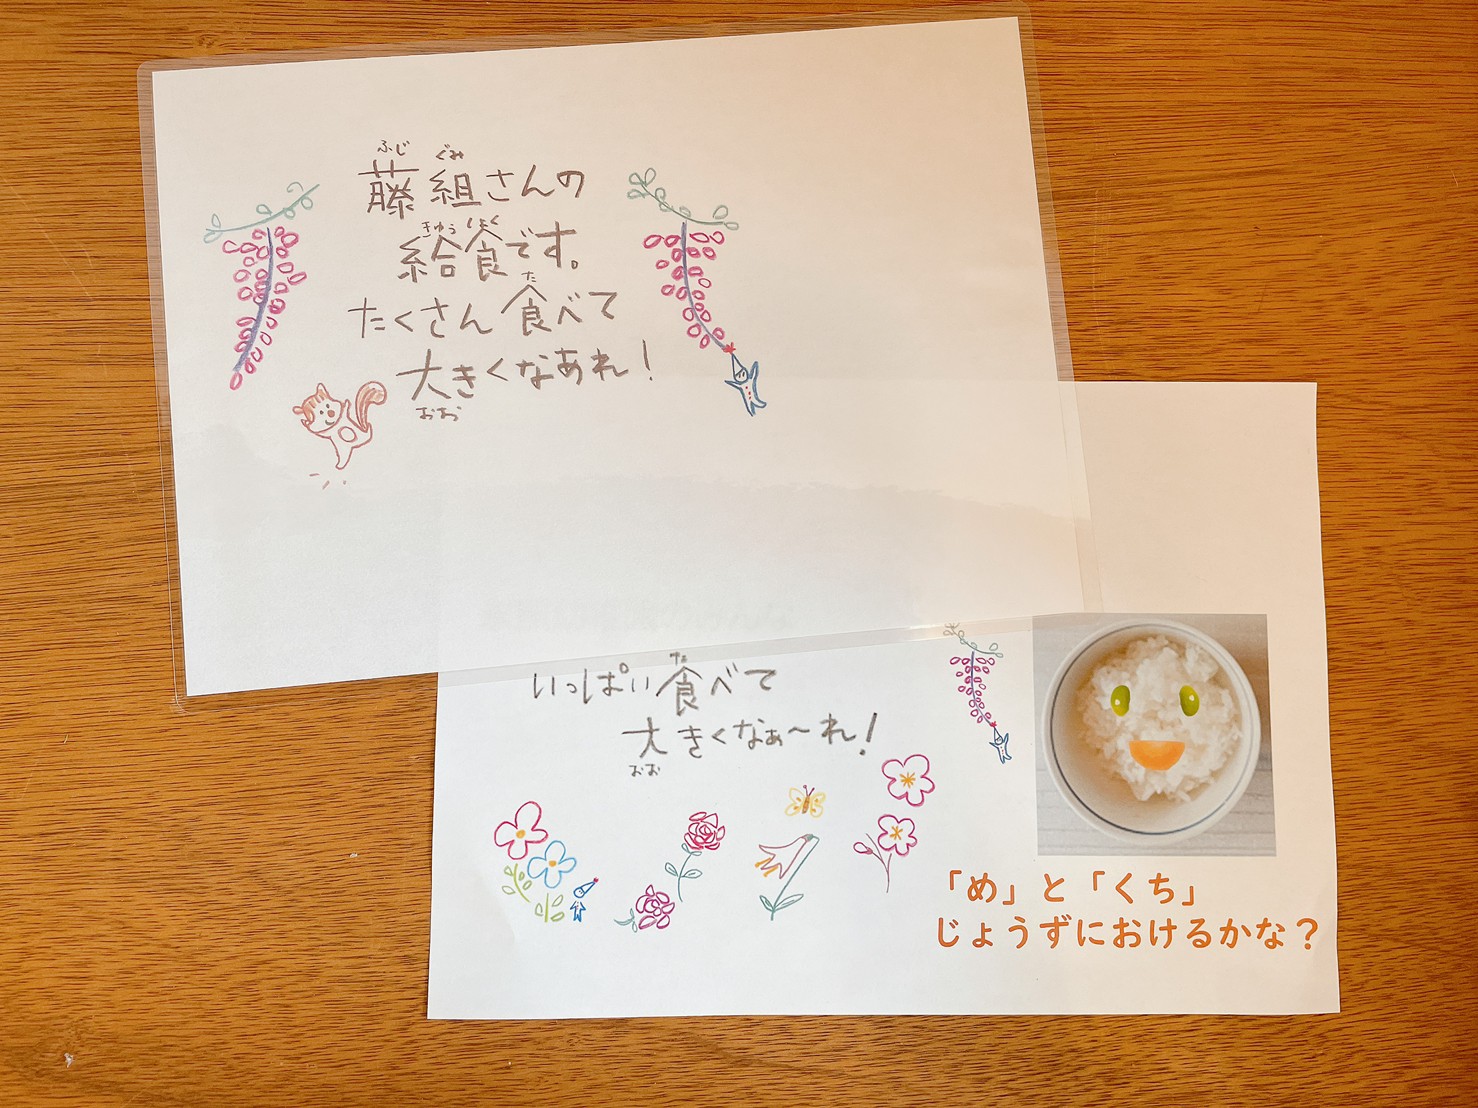 ふじ ぐみ
藤組さんの
きゅうしょく
給食です。
た
たくさん食べて
大きくなあれ！
おお
た
いっぱい食べて
大きくなぁ〜れ！
おお
「め」と「くち」
じょうずにおけるかな？